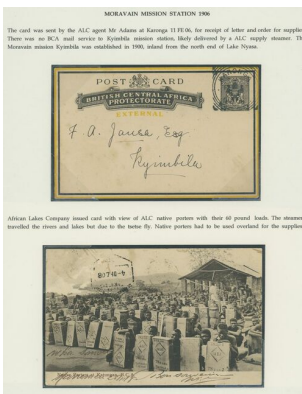 MORAVAIN MISSION STATION 1906
The card was sent by the ALC agent Mr Adams at Karonga 11 FE 06, for receipt of letter and order for supplies.
There was no BCA mail service to Kyimbila mission station, likely delivered by a ALC supply steamer. Th
Moravain mission Kyimbila was established in 1900, inland from the north end of Lake Nyasa.
POST CARD
BRITISH CENTRAL AFRICA
PROTECTORATE
EXTERNAL
F. A. Jansa, Esq
Kyimbila
African Lakes Company issued card with view of ALC native porters with their 60 pound loads. The steamer
travelled the rivers and lakes but due to the tsetse fly. Native porters had to be used overland for the supplies